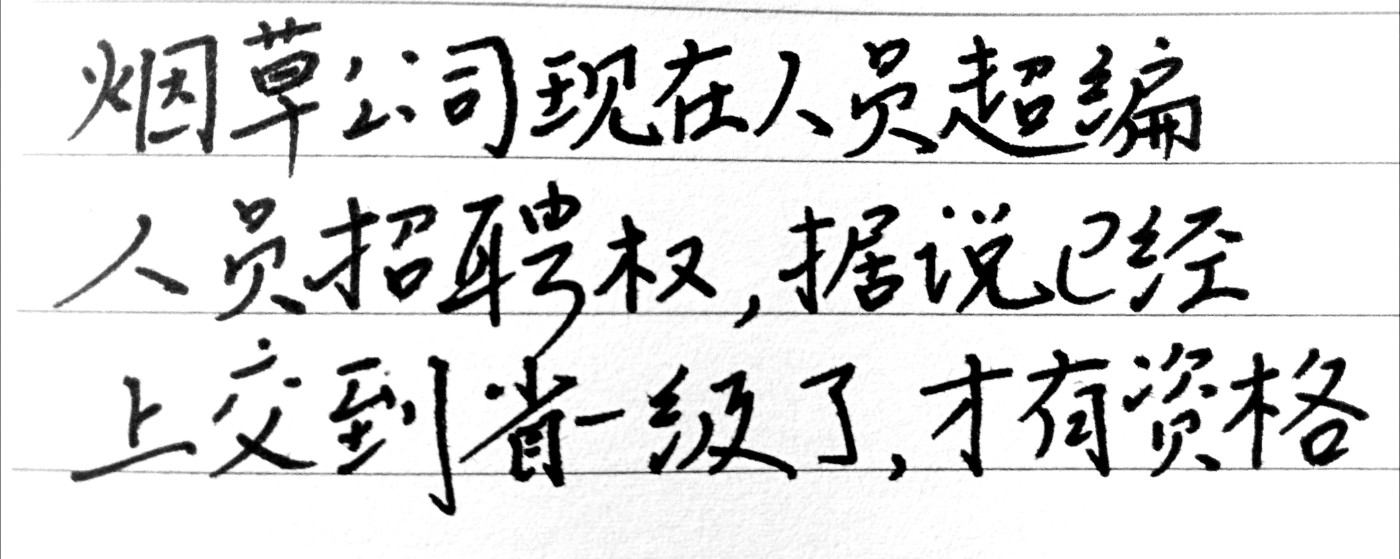 烟草公司现在人员超编
人员招聘权,据说已经
上交到省一级了,才有资格